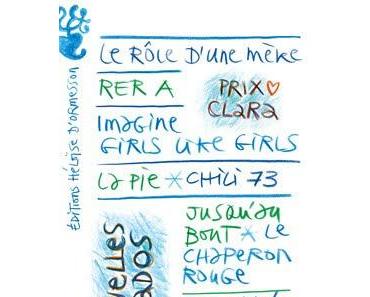 ÉDITIONS HÉLOÏSE D'ORMESSON
LE RÔLE D'UNE MÈRE
RER A
PRIX
CLARA
IMAGINE
GIRLS LIKE GIRLS
LA PIE * CHILI 73
JUSQU'AU
BOUT * LE
CHAPERON
ROUGE